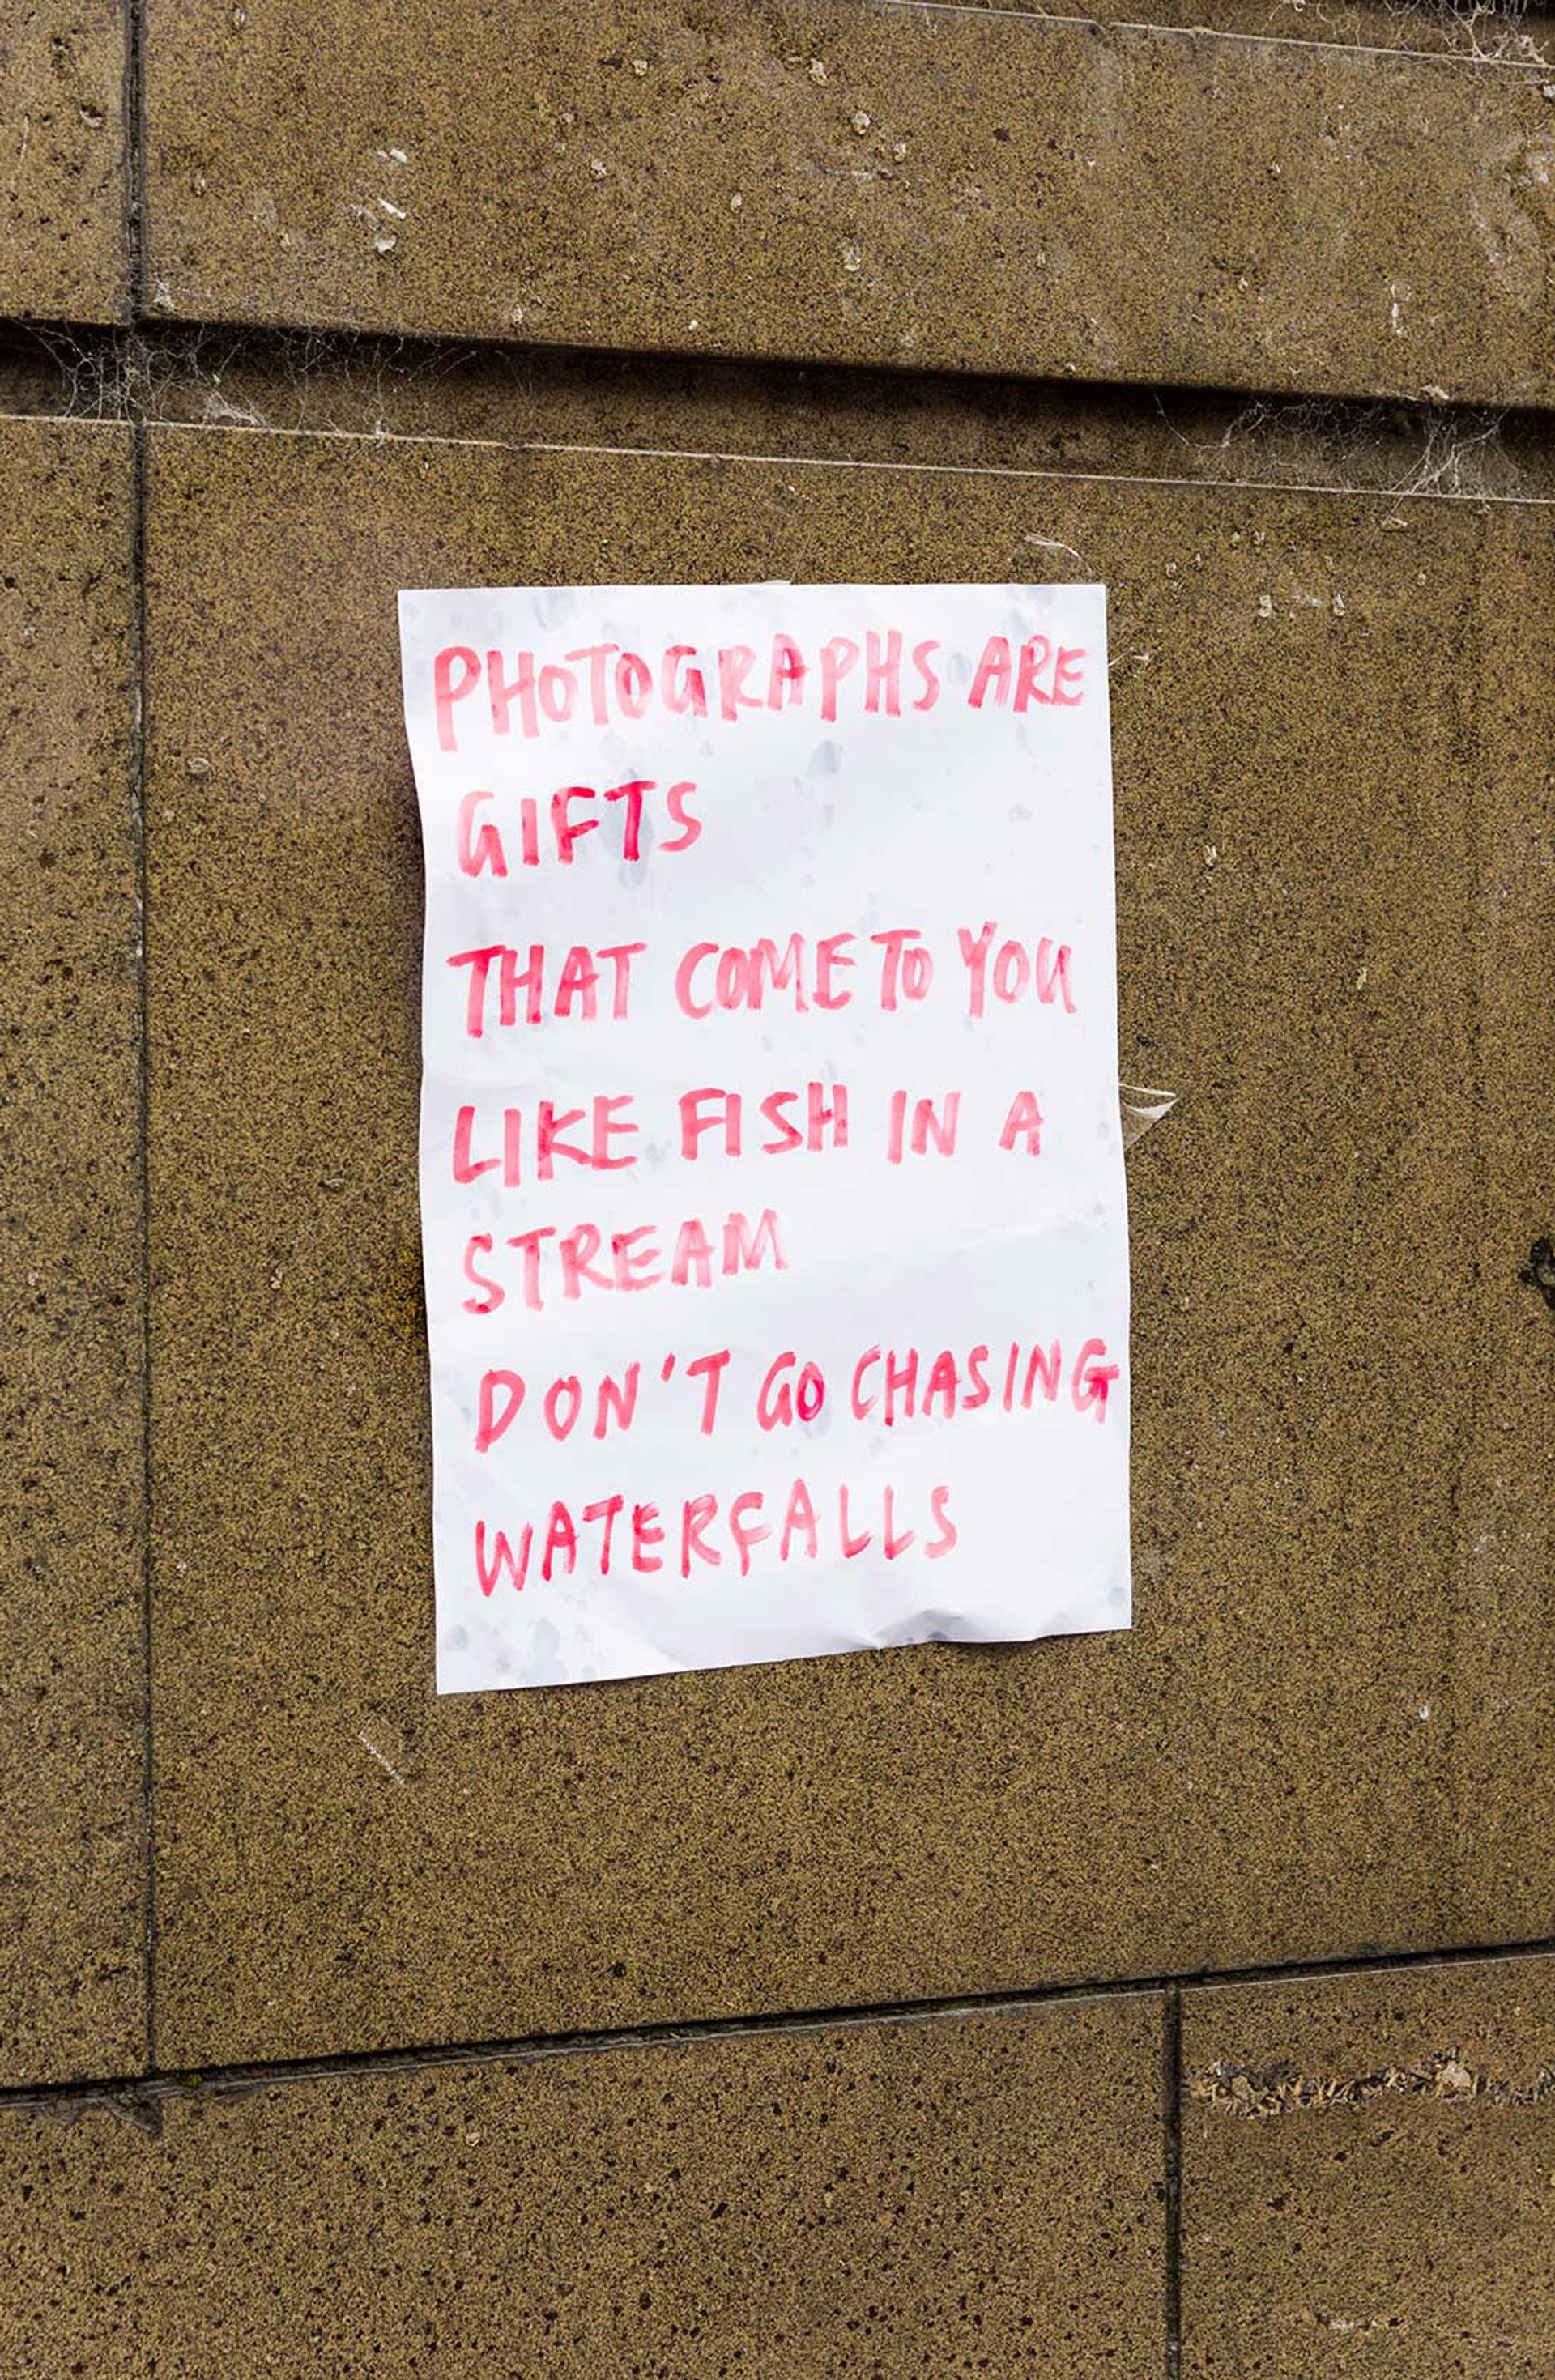 PHOTOGRAPHS ARE
GIFTS
THAT COME TO YOU
LIKE FISH IN A
STREAM
DON'T GO CHASING
WATERFALLS